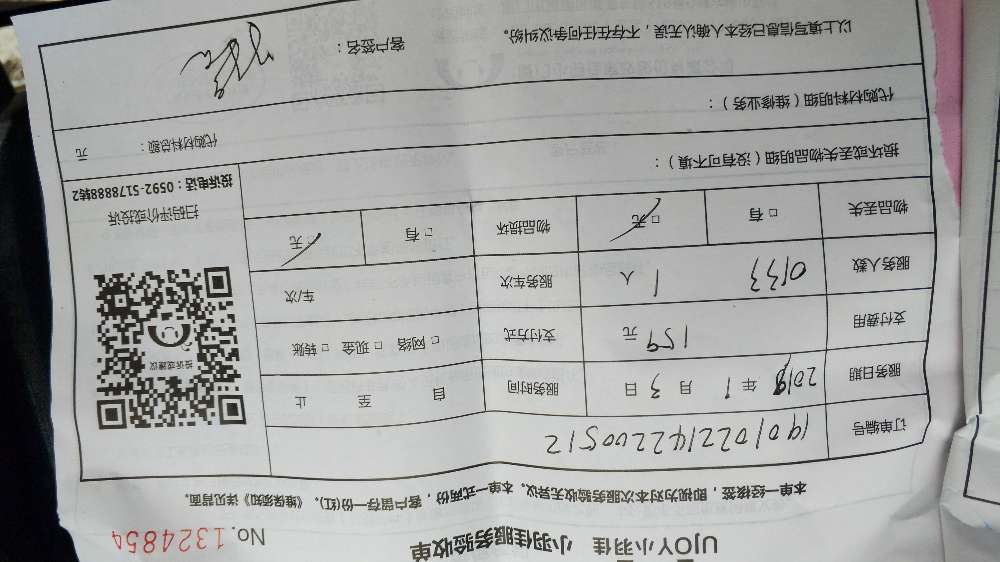 UJOY小羽佳 小羽佳服务验收单
No. 1324854
本单一经核签，即视为对本次服务验收无异议。本单一式两份，客户留存一份(红)，《维保须知》详见背面。
订单编号 190102214220051 2
服务日期 2019年1月3日 服务时间 自 至 止
支付费用 159元 支付方式 □网络 □现金 □转账
服务人数 0133 1人 服务车次 车/次
物品丢失 □有 □无 物品损坏 □有 □无
投诉或建议
扫码评价或投诉
投诉电话：0592-5178888转2
损坏或丢失物品明细（没有可不填）：
代购材料明细（维修业务）： 代购材料总额： 元
以上填写信息已经本人确认无误，不存在任何争议纠纷。 客户签名：